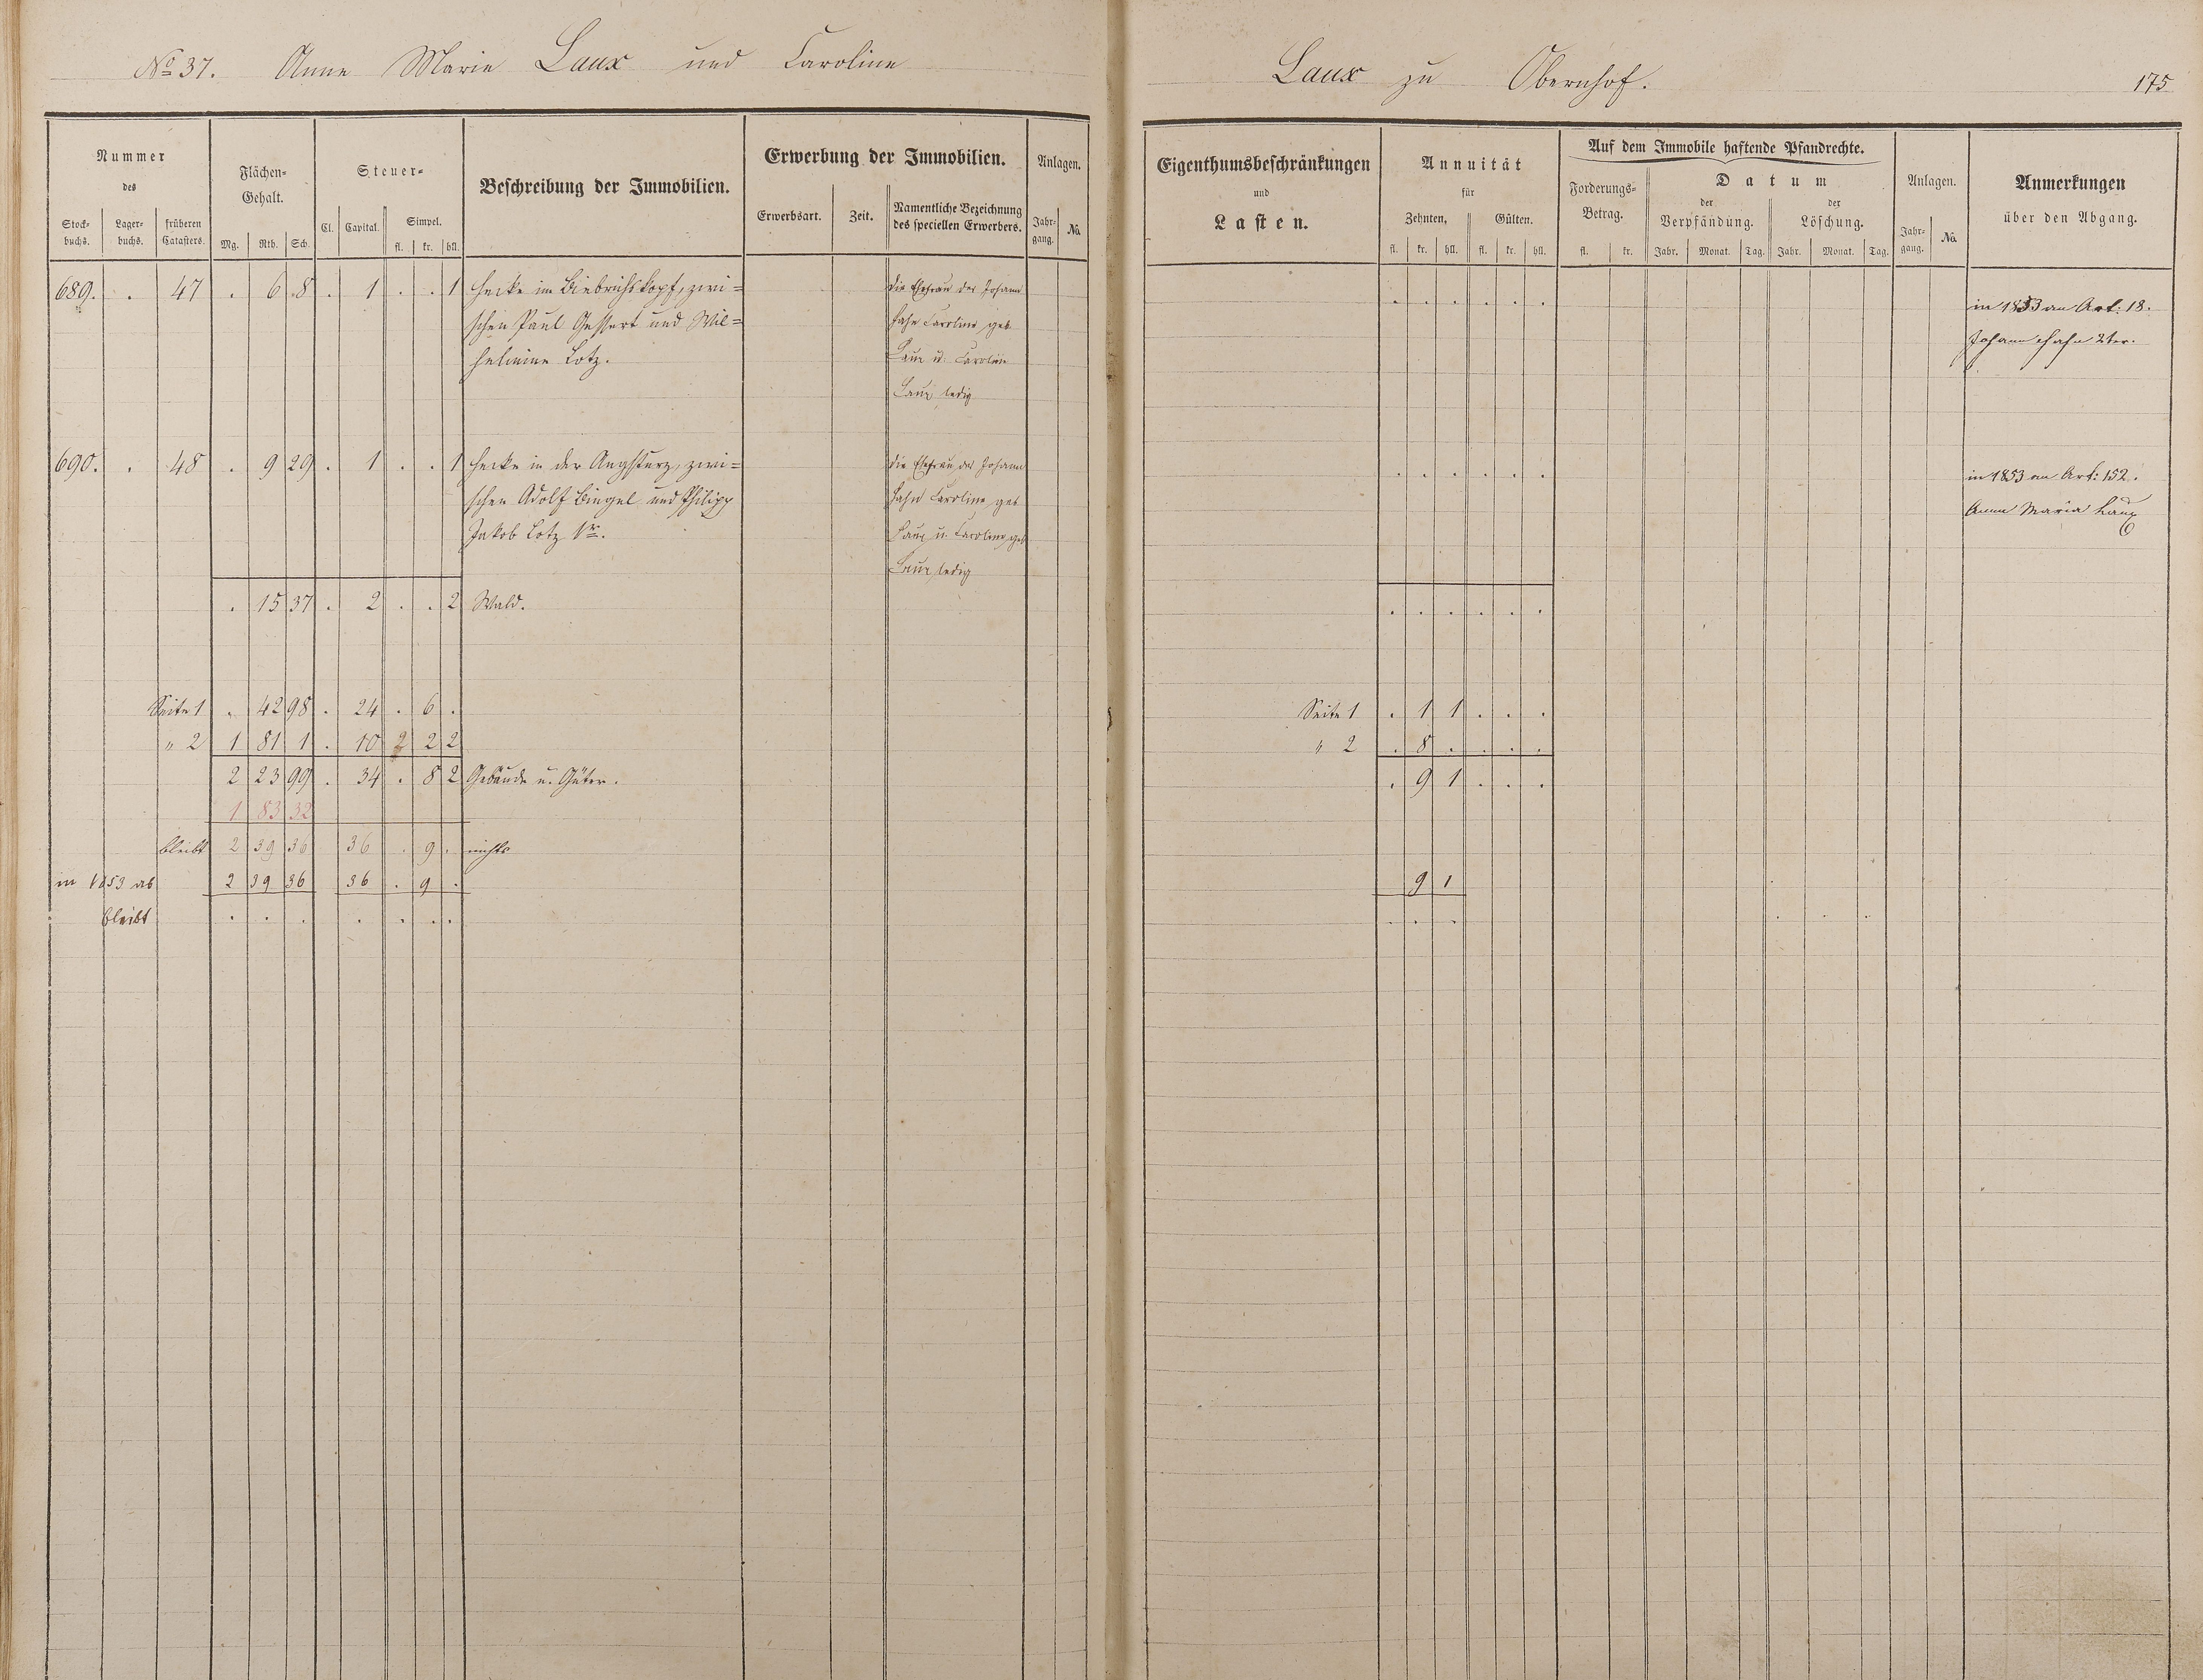 No 37. Anne Marie Laux und Caroline
Laux zu Obernhof.
175
Nummer
des
Stock-
buchs.
Lager-
buchs.
früheren
Catasters.
Flächen-
Gehalt.
Mg. Rth. Sch.
Steuer-
Cl. Capital.
Simpel.
fl. kr. hll.
Beschreibung der Immobilien.
Erwerbung der Immobilien.
Erwerbsart. Zeit.
Namentliche Bezeichnung
des speciellen Erwerbers.
Anlagen.
Jahr-
gang.
No.
Eigenthumsbeschränkungen
und
Lasten.
Annuität
für
Zehnten, Gülten.
fl. kr. hll. fl. kr. hll.
Auf dem Immobile haftende Pfandrechte.
Forderungs-
Betrag.
fl. kr.
Datum
der
Verpfändung.
der
Löschung.
Jahr. Monat. Tag. Jahr. Monat. Tag.
Anlagen.
Jahr-
gang.
No.
Anmerkungen
über den Abgang.
689. . 47 . 6 8 . 1 . . 1 Hecke im Biebrichskopf, zwi=
schen Paul Gessert und Wil=
helmine Lotz.
die Ehefrau des Johann
Hahn Caroline geb
Laux u. Caroline
Laux ledig
. . . . . .
in 1853 an Art: 18.
Johann Hahn 2ter.
690. . 48 . 9 29 . 1 . . 1 Hecke in der Angstarz, zwi=
schen Adolf Bingel und Philipp
Jakob Lotz 1r.
die Ehefrau des Johann
Hahn Caroline geb
Laux u. Caroline geb
Laux ledig
. . . . . .
in 1853 an Art: 152.
Anna Maria Laux
. 15 37 . 2 . . 2 Wald.
. . . . . .
Seite 1 . 42 98 . 24 . 6 .
" 2 1 81 1 . 10 2 2 2
2 23 99 . 34 . 8 2 Gebäude u. Güter.
1 83 32
bleibt 2 39 36 36 . 9 . nichts
in 1853 ab 2 39 36 36 . 9 .
bleibt . . . . . . .
Seite 1 . 1 1 . . .
" 2 . 8 . . . .
. 9 1 . . .
9 1
. . .